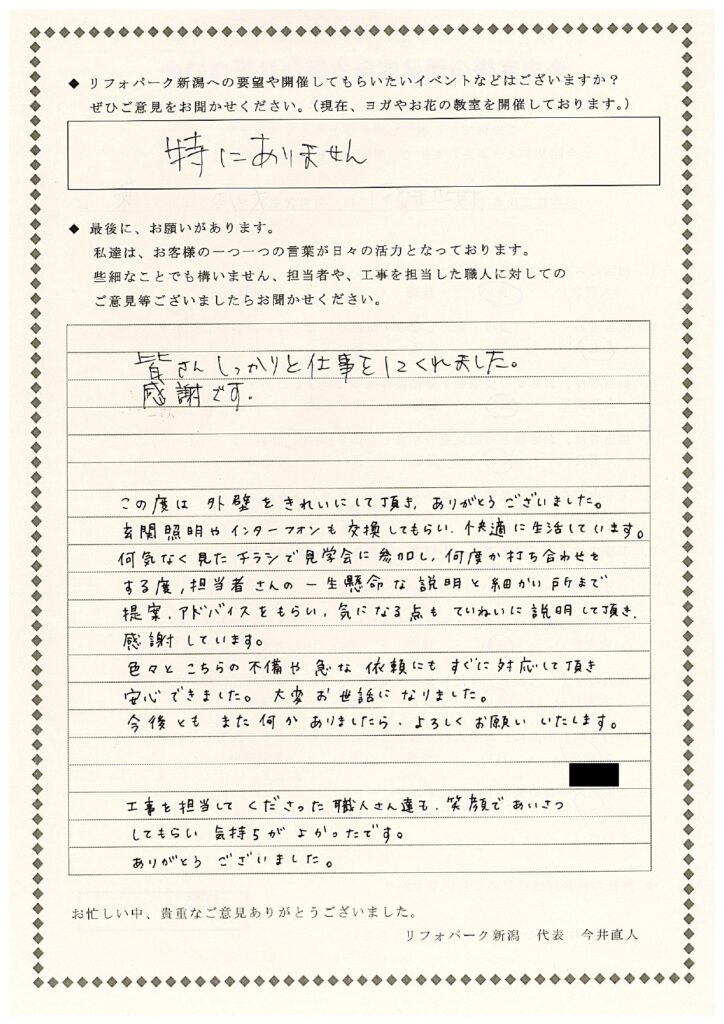 ◆ リフォパーク新潟への要望や開催してもらいたいイベントなどはございますか？
ぜひご意見をお聞かせください。（現在、ヨガやお花の教室を開催しております。）
特にありません
◆ 最後に、お願いがあります。
私達は、お客様の一つ一つの言葉が日々の活力となっております。
些細なことでも構いません、担当者や、工事を担当した職人に対しての
ご意見等ございましたらお聞かせください。
皆さんしっかりと仕事をしてくれました。
感謝です.
この度は 外壁をきれいにして頂き、ありがとうございました。
玄関照明やインターフォンも交換してもらい、快適に生活しています。
何気なく見たチラシで見学会に参加し、何度か打ち合わせを
する度、担当者さんの一生懸命な説明と細かい所まで
提案、アドバイスをもらい、気になる点もていねいに説明して頂き、
感謝しています。
色々とこちらの不備や急な依頼にもすぐに対応して頂き
安心できました。大変お世話になりました。
今後ともまた何かありましたら、よろしくお願いいたします。
工事を担当してくださった職人さん達も、笑顔であいさつ
してもらい気持ちがよかったです。
ありがとうございました。
お忙しい中、貴重なご意見ありがとうございました。
リフォパーク新潟 代表 今井直人